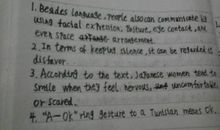 1. Besides language, people also can communicate by
using facial expression, posture, eye contact, and
even space arrangement.
2. In terms of keeping silence, it can be regarded as
disfavor.
3. According to the text, Japanese women tend to
smile when they feel nervous, uncomfortable
or scared.
4. "A-Ok" ring gesture to a Tunisian means Ok.